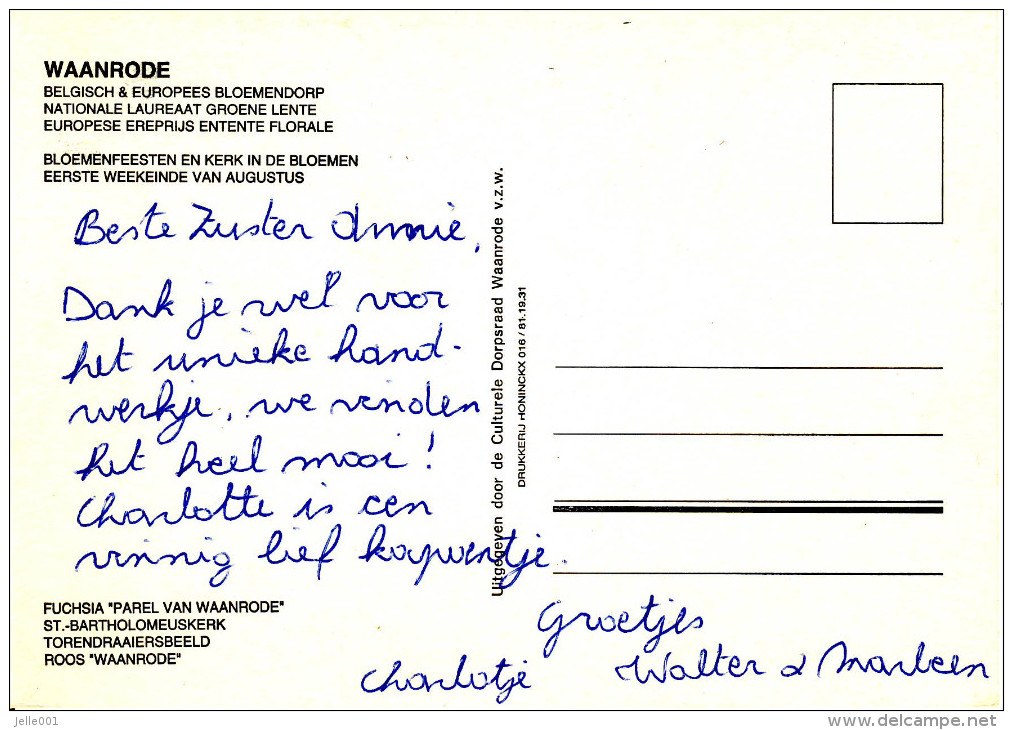 WAANRODE
BELGISCH & EUROPEES BLOEMENDORP
NATIONALE LAUREAAT GROENE LENTE
EUROPESE EREPRIJS ENTENTE FLORALE
BLOEMENFEESTEN EN KERK IN DE BLOEMEN
EERSTE WEEKEINDE VAN AUGUSTUS
Beste Zuster Annie,
Dank je wel voor
het unieke hand-
werkje, we vinden
het heel mooi!
Charlotte is een
vinnig lief
FUCHSIA "PAREL VAN WAANRODE"
ST.-BARTHOLOMEUSKERK
TORENDRAAIERSBEELD
ROOS "WAANRODE"
Uitgegeven door de Culturele Dorpsraad Waanrode v.z.w.
DRUKKERIJ HONINCKX 016 / 81.19.31
Groetjes
Walter & Marleen
Charlotje
jelle001
delcampe.net